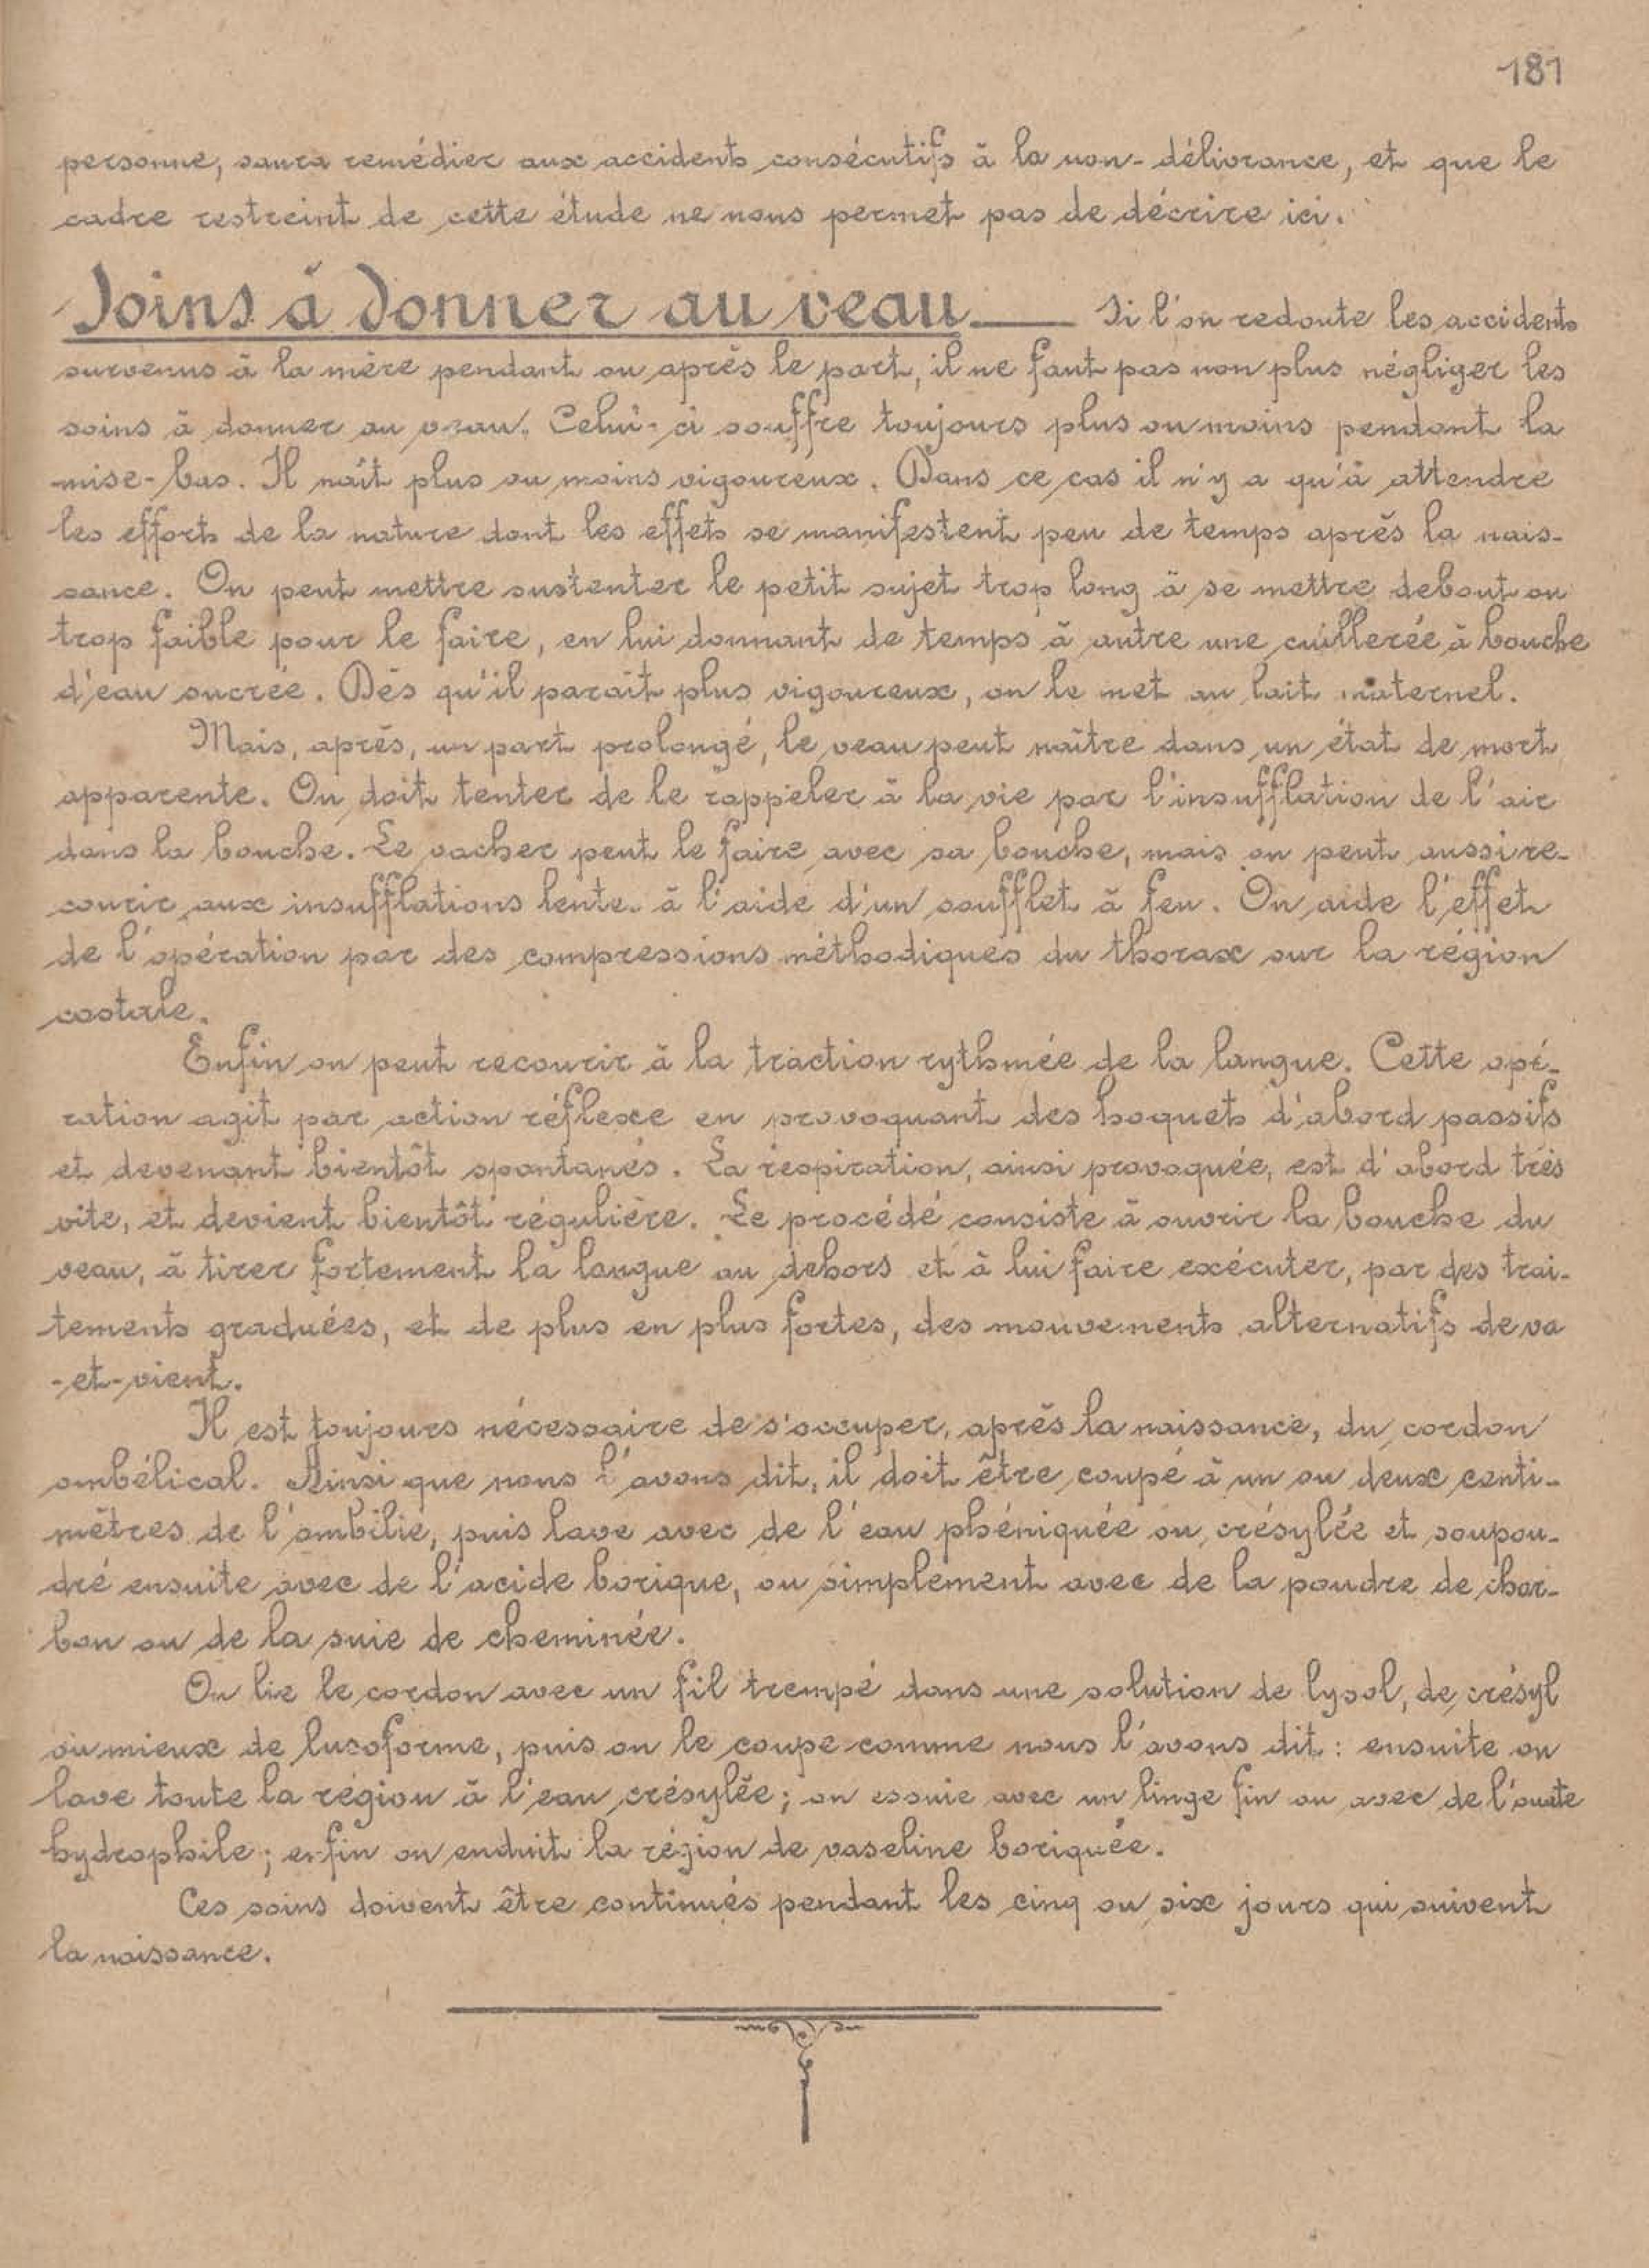 181
personne, saura remédier aux accidents consécutifs à la non-délivrance, et que le
cadre restreint de cette étude ne nous permet pas de décrire ici.
Soins à donner au veau. — Si l'on redoute les accidents
survenus à la mère pendant ou après le part, il ne faut pas non plus négliger les
soins à donner au veau. Celui-ci souffre toujours plus ou moins pendant la
mise-bas. Il naît plus ou moins vigoureux. Dans ce cas il n'y a qu'à attendre
les efforts de la nature dont les effets se manifestent peu de temps après la nais-
sance. On peut mettre sustenter le petit sujet trop long à se mettre debout ou
trop faible pour le faire, en lui donnant de temps à autre une cuillerée à bouche
d'eau sucrée. Dès qu'il paraît plus vigoureux, on le met au lait maternel.
Mais, après, un part prolongé, le veau peut naître dans un état de mort
apparente. On doit tenter de le rappeler à la vie par l'insufflation de l'air
dans la bouche. Le vacher peut le faire avec sa bouche, mais on peut aussi re-
courir aux insufflations lente. à l'aide d'un soufflet à feu. On aide l'effet
de l'opération par des compressions méthodiques du thorax sur la région
costale.
Enfin on peut recourir à la traction rythmée de la langue. Cette opé-
ration agit par action réflexe en provoquant des hoquets d'abord passifs
et devenant bientôt spontanés. La respiration, ainsi provoquée, est d'abord très
vite, et devient bientôt régulière. Le procédé consiste à ouvrir la bouche du
veau, à tirer fortement la langue au dehors et à lui faire exécuter, par des trai-
tements graduées, et de plus en plus fortes, des mouvements alternatifs de va
-et-vient.
Il est toujours nécessaire de s'occuper, après la naissance, du cordon
ombélical. Ainsi que nous l'avons dit, il doit être coupé à un ou deux centi-
mètres de l'ombilie, puis lave avec de l'eau phéniquée ou crésylée et soupou-
dré ensuite avec de l'acide borique, ou simplement avec de la poudre de char-
bon ou de la suie de cheminée.
On lie le cordon avec un fil trempé dans une solution de lysol, de crésyl
ou mieux de lusoforme, puis on le coupe comme nous l'avons dit : ensuite on
lave toute la région à l'eau crésylée ; on essuie avec un linge fin ou avec de l'ouate
hydrophile ; enfin on enduit la région de vaseline boriquée.
Ces soins doivent être continués pendant les cinq ou six jours qui suivent
la naissance.